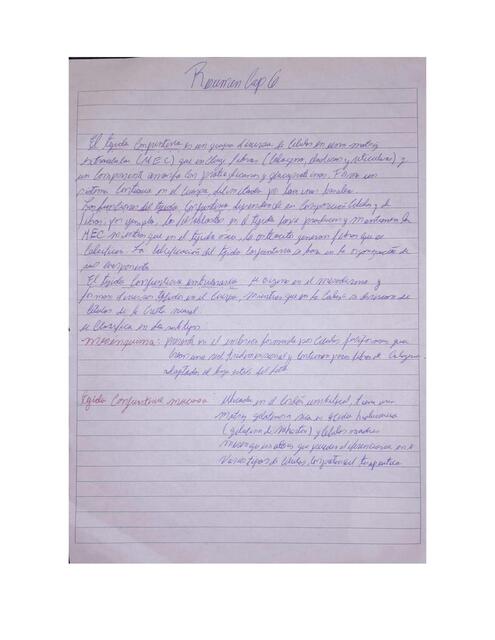 Resumen Cap 6
El tejido Conjuntivo es un grupo diverso de células en una matriz
extracelular (MEC) que incluye fibras (colágeno, elásticas y reticulares) y
un componente amorfo con proteoglucanos y glucoproteínas. Forma un
sistema continuo en el cuerpo delimitado por láminas basales
Las funciones del tejido conjuntivo dependen de su composición celular y de
fibras, por ejemplo, los fibroblastos en el tejido laxo producen y mantienen la
MEC mientras que en el tejido óseo, los osteocitos generan fibras que se
calcifican. La clasificación del tejido conjuntivo se basa en la organización de
sus componentes
El tejido Conjuntivo embrionario se origina en el mesodermo y
forma diversos tejidos en el cuerpo, mientras que en la cabeza se derivan de
células de la cresta neural.
se clasifica en dos subtipos
Mesenquima: presente en el embrion formado por células fusiformes que
crean una red tridimensional y contienen pocas fibras de colágeno
adaptadas al bajo estrés del feto
Tejido Conjuntivo mucoso: Ubicado en el cordón umbilical, tiene una
matriz gelatinosa rica en ácido hialurónico
(gelatina de Wharton) y células madres
mesenquimatosas que pueden diferenciarse en
varios tipos de células, con potencial terapeutico